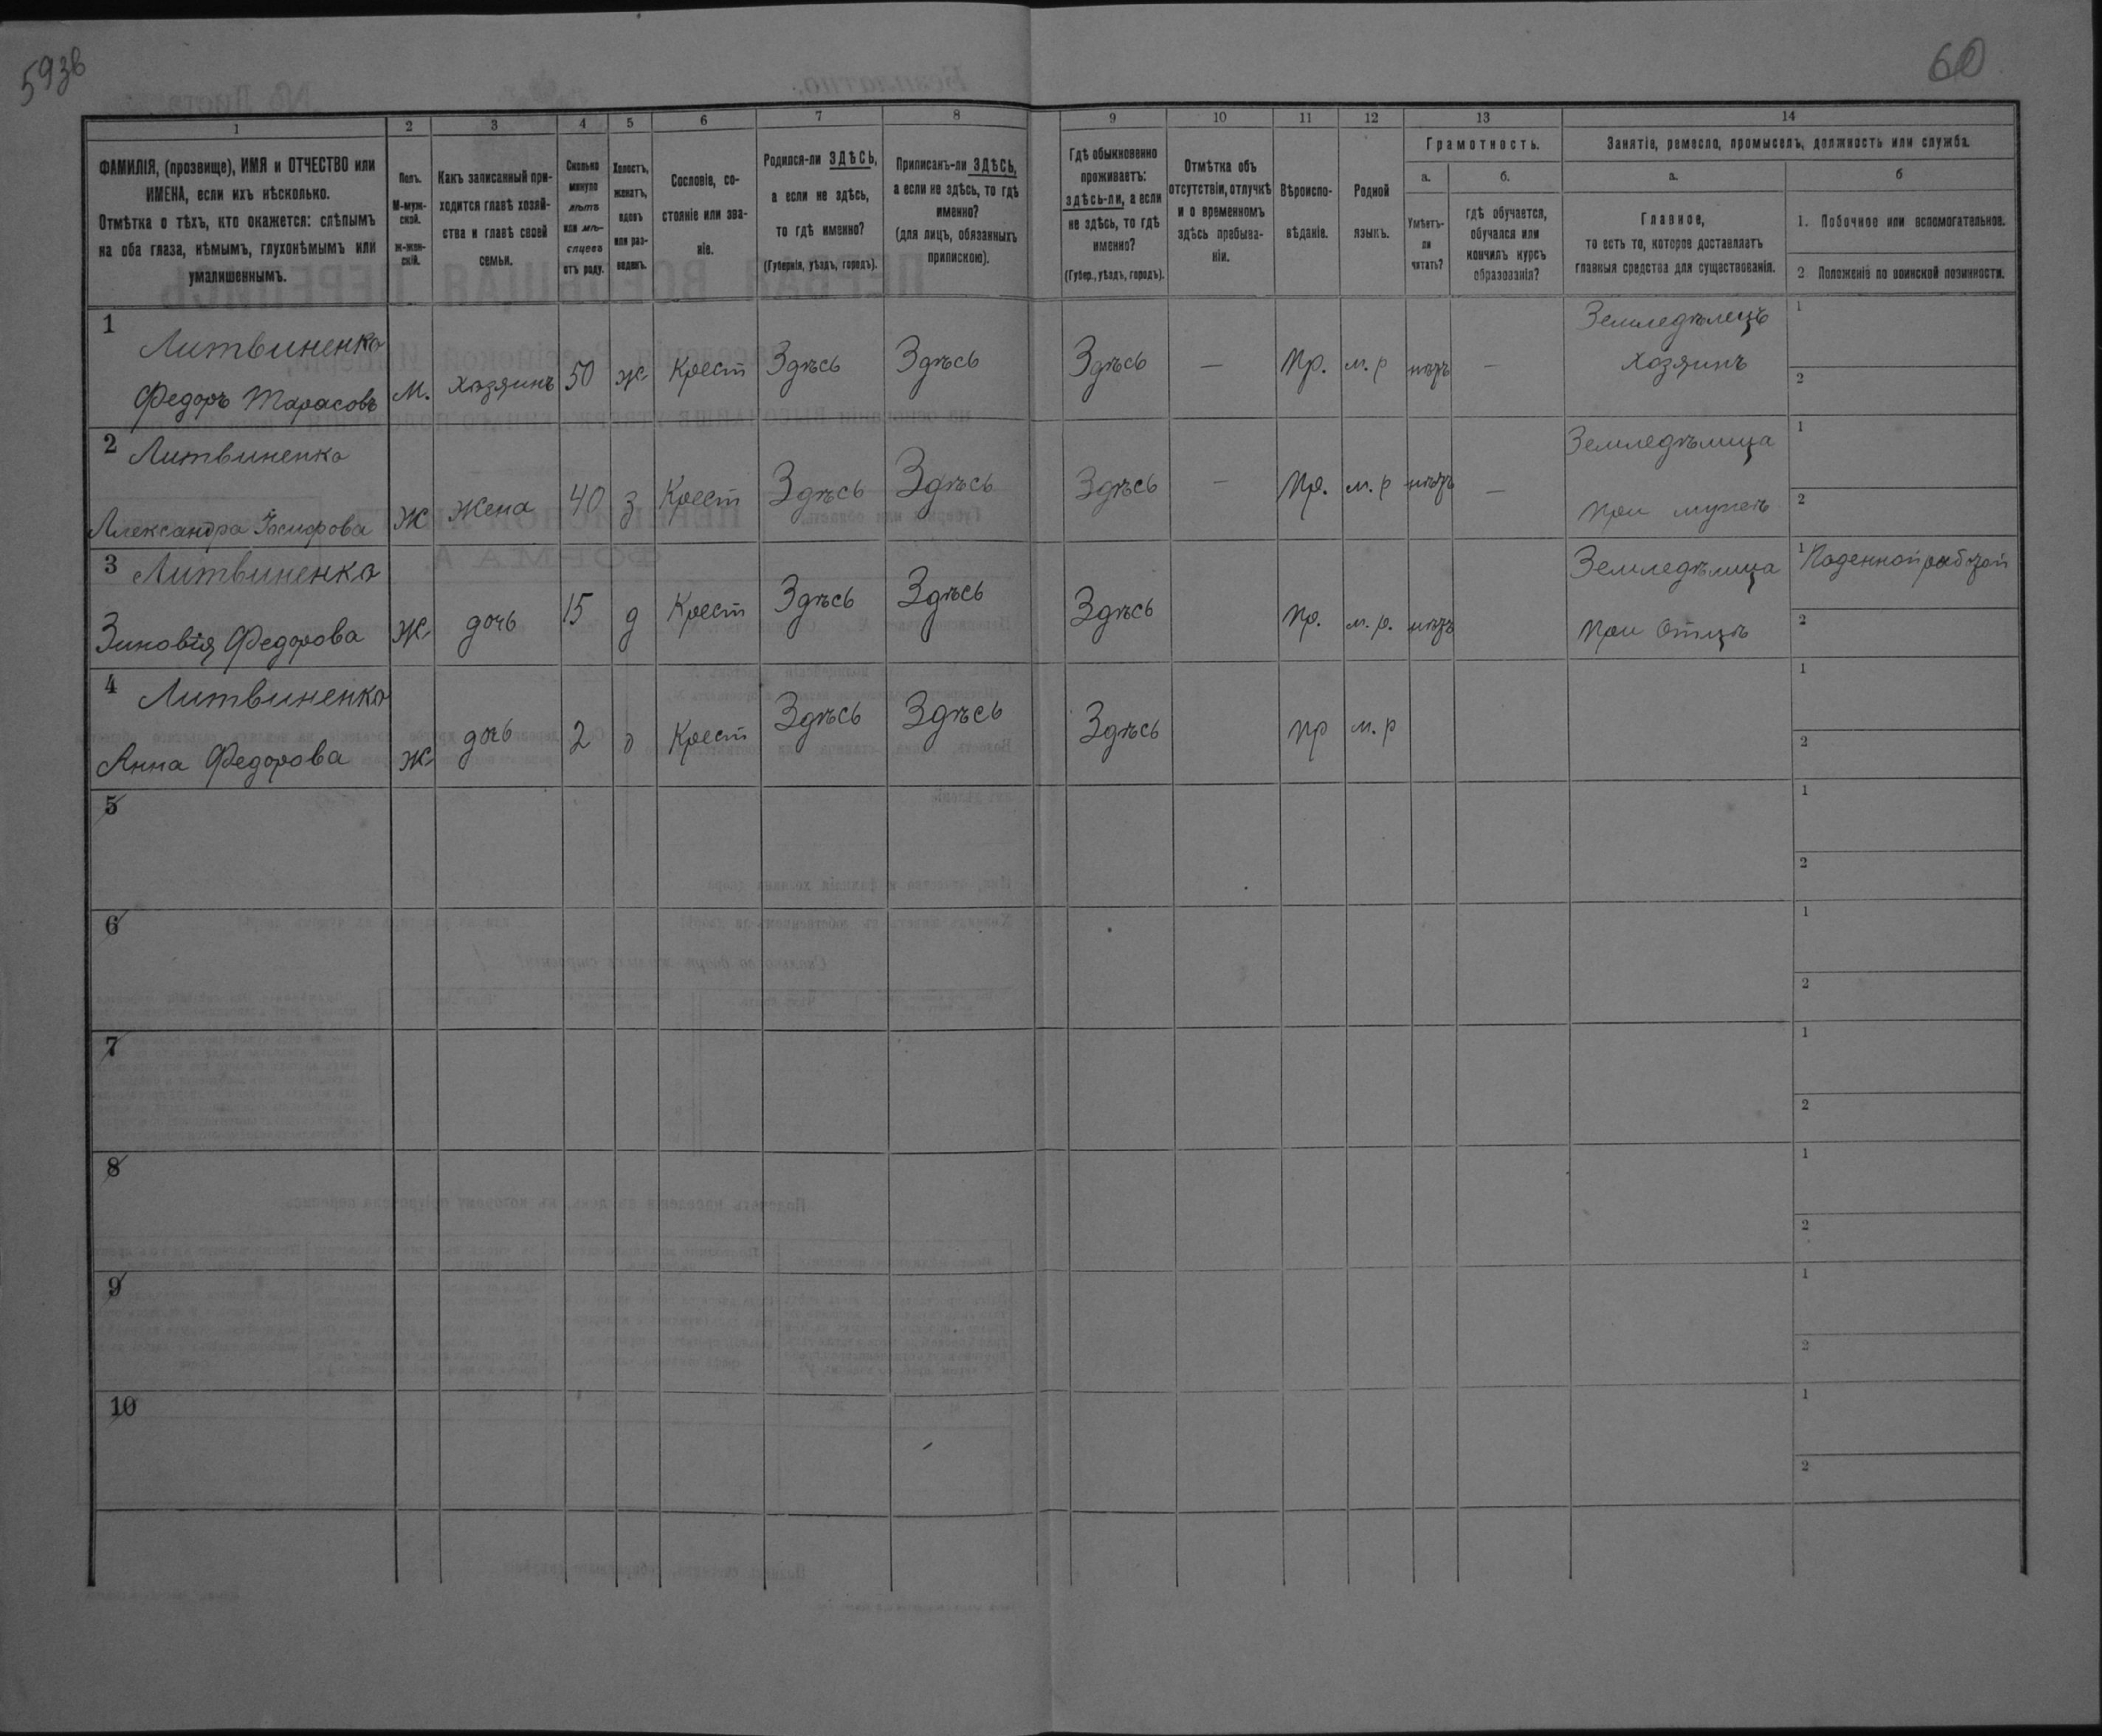 593в
60
1
2
3
4
5
6
7
8
9
10
11
12
13
14
ФАМИЛІЯ, (прозвище), ИМЯ и ОТЧЕСТВО или
ИМЕНА, если ихъ нѣсколько.
Отмѣтка о тѣхъ, кто окажется: слѣпымъ
на оба глаза, нѣмымъ, глухонѣмымъ или
умалишеннымъ.
Полъ.
М-муж-
ской.
Ж-жен-
скій.
Какъ записанный при-
ходится главѣ хозяй-
ства и главѣ своей
семьи.
Сколько
минуло
лѣтъ
или мѣ-
сяцевъ
отъ роду.
Холостъ,
женатъ,
вдовъ
или раз-
веденъ.
Сословіе, со-
стояніе или зва-
ніе.
Родился-ли ЗДѢСЬ,
а если не здѣсь,
то гдѣ именно?
(Губернія, уѣздъ, городъ).
Приписанъ-ли ЗДѢСЬ,
а если не здѣсь, то гдѣ
именно?
(для лицъ, обязанныхъ
припискою).
Гдѣ обыкновенно
проживаетъ:
здѣсь-ли, а если
не здѣсь, то гдѣ
именно?
(Губер., уѣздъ, городъ).
Отмѣтка объ
отсутствіи, отлучкѣ
и о временномъ
здѣсь пребыва-
ніи.
Вѣроиспо-
вѣданіе.
Родной
языкъ.
Грамотность.
а.
Умѣетъ-
ли
читать?
б.
гдѣ обучается,
обучался или
кончилъ курсъ
образованія?
Занятіе, ремесло, промыселъ, должность или служба.
а.
Главное,
то есть то, которое доставляетъ
главныя средства для существованія.
б
1. Побочное или вспомогательное.
2 Положеніе по воинской повинности.
1
Литвиненко
Федоръ Тарасовъ
М. хозяинъ 50 ж Крест Здѣсь Здѣсь Здѣсь — Пр. м. р нѣтъ —
Земледѣлецъ
хозяинъ
1
2
2 Литвиненко
Александра
Ж жена 40 з Крест Здѣсь Здѣсь Здѣсь — Пр. м. р нѣтъ —
Земледѣлица
при мужѣ
1
2
3 Литвиненко
Зиновія Федорова
Ж дочь 15 д Крест Здѣсь Здѣсь Здѣсь Пр. м. р. нѣтъ
Земледѣлица
при Отцѣ
1 Поденной
2
4 Литвиненко
Анна Федорова
Ж дочь 2 д Крест Здѣсь Здѣсь Здѣсь Пр м. р
1
2
5
1
2
6
1
2
7
1
2
8
1
2
9
1
2
10
1
2